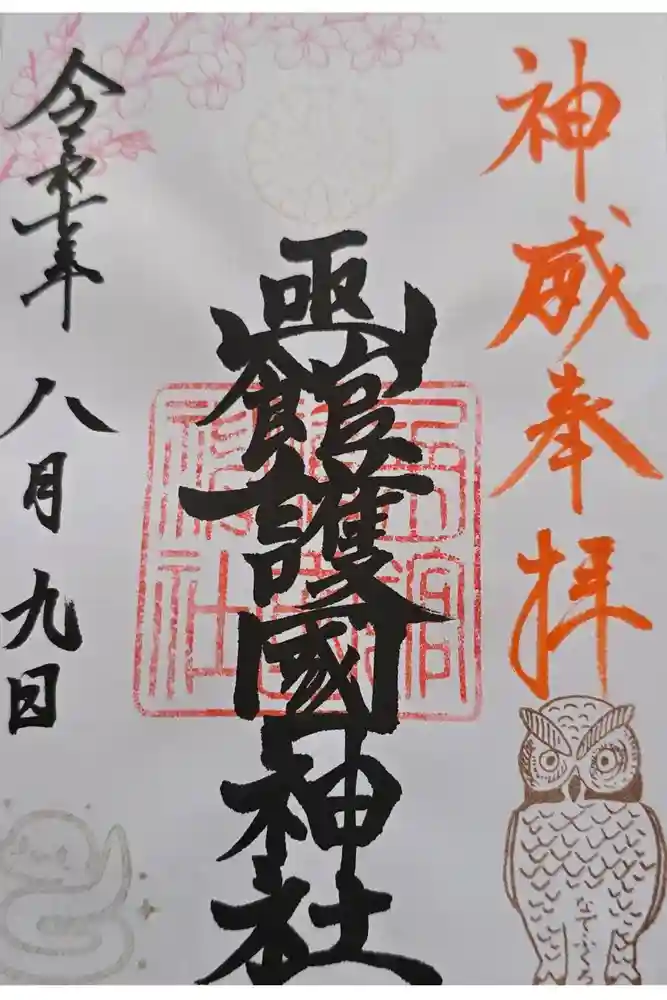 神威奉拝
凾館護國神社
令和七年 八月九日